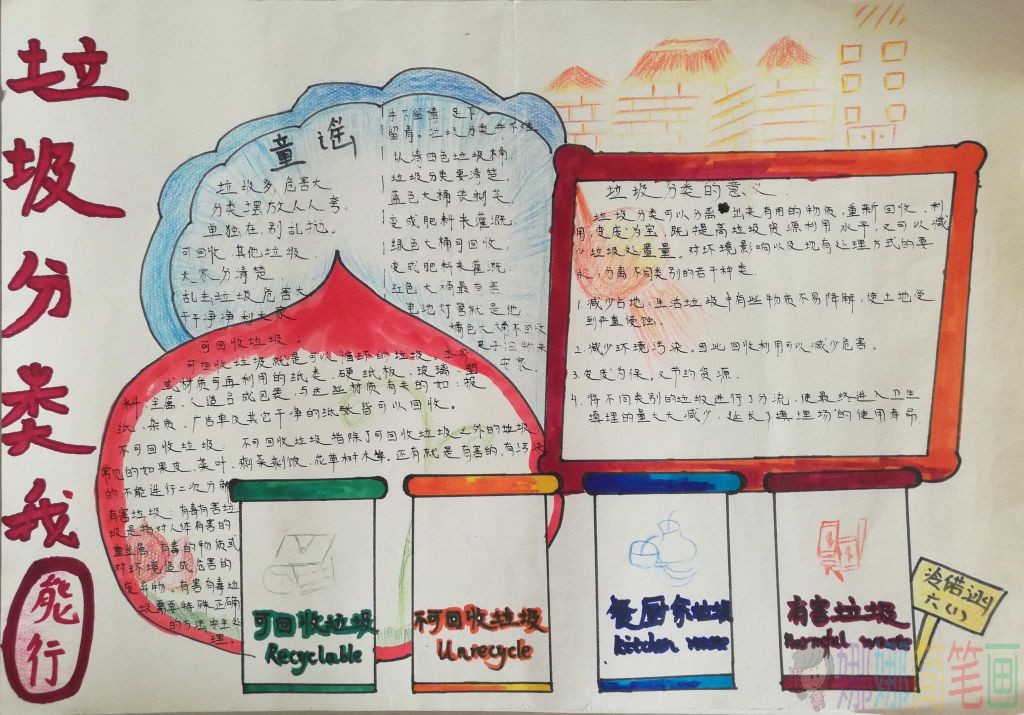 垃圾分类我能行
童谣
垃圾多,危害大
分类摆放人人夸。
单独在,别乱拉。
可回收,其他垃圾
大家分清楚,
乱丢垃圾危害大
干干净净利大家
手下留情,足下
留青。垃圾分类并不难
认清四色垃圾桶,
垃圾分类要清楚,
蓝色大桶装剩菜
变成肥料来灌溉,
绿色大桶可回收,
变成肥料来灌溉,
红色大桶最有害
电池灯管就是他,
橘色大桶不可收
可回收垃圾。
可回收垃圾就是可以循环的垃圾,本身
或材质可再利用的纸类、硬纸板、玻璃、塑
料、金属、人造合成包装,与这些材质有关的如:报
纸、杂质、广告单及其它干净的纸张皆可以回收。
不可回收垃圾: 不可回收垃圾指除了可回收垃圾之外的垃圾
常见的如果皮,菜叶,剩菜剩饭,花草树木等。还有就是有害的,有污染
的不能进行二次分解
有害垃圾:有毒有害垃
圾是指对人体有害的
重金属、有毒的物质或
对环境造成危害的
废弃物。有害有毒垃
圾需要特殊正确
的方法安全处
理
垃圾分类的意义
垃圾分类可以分离出来有用的物质,重新回收、利
用变废为宝,既提高垃圾资源利用水平,又可以减
少垃圾处置量。对环境影响以及现有处理方式的要
求,分离不同类别的若干种类.
1.减少占地:生活垃圾中有些物质不易降解,使土地受
到严重侵蚀。
2.减少环境污染。因此回收利用可以减少危害。
3.变废为保。又节约资源.
4.将不同类别的垃圾进行了分流,使最终进入卫生
填埋的量大大减少,延长了填埋场的使用寿命
可回收垃圾
Recyclable
不可回收垃圾
Unrecycle
餐厨余垃圾
kitchen waste
有害垃圾
Harmful waste
六(1)
娜娜简笔画